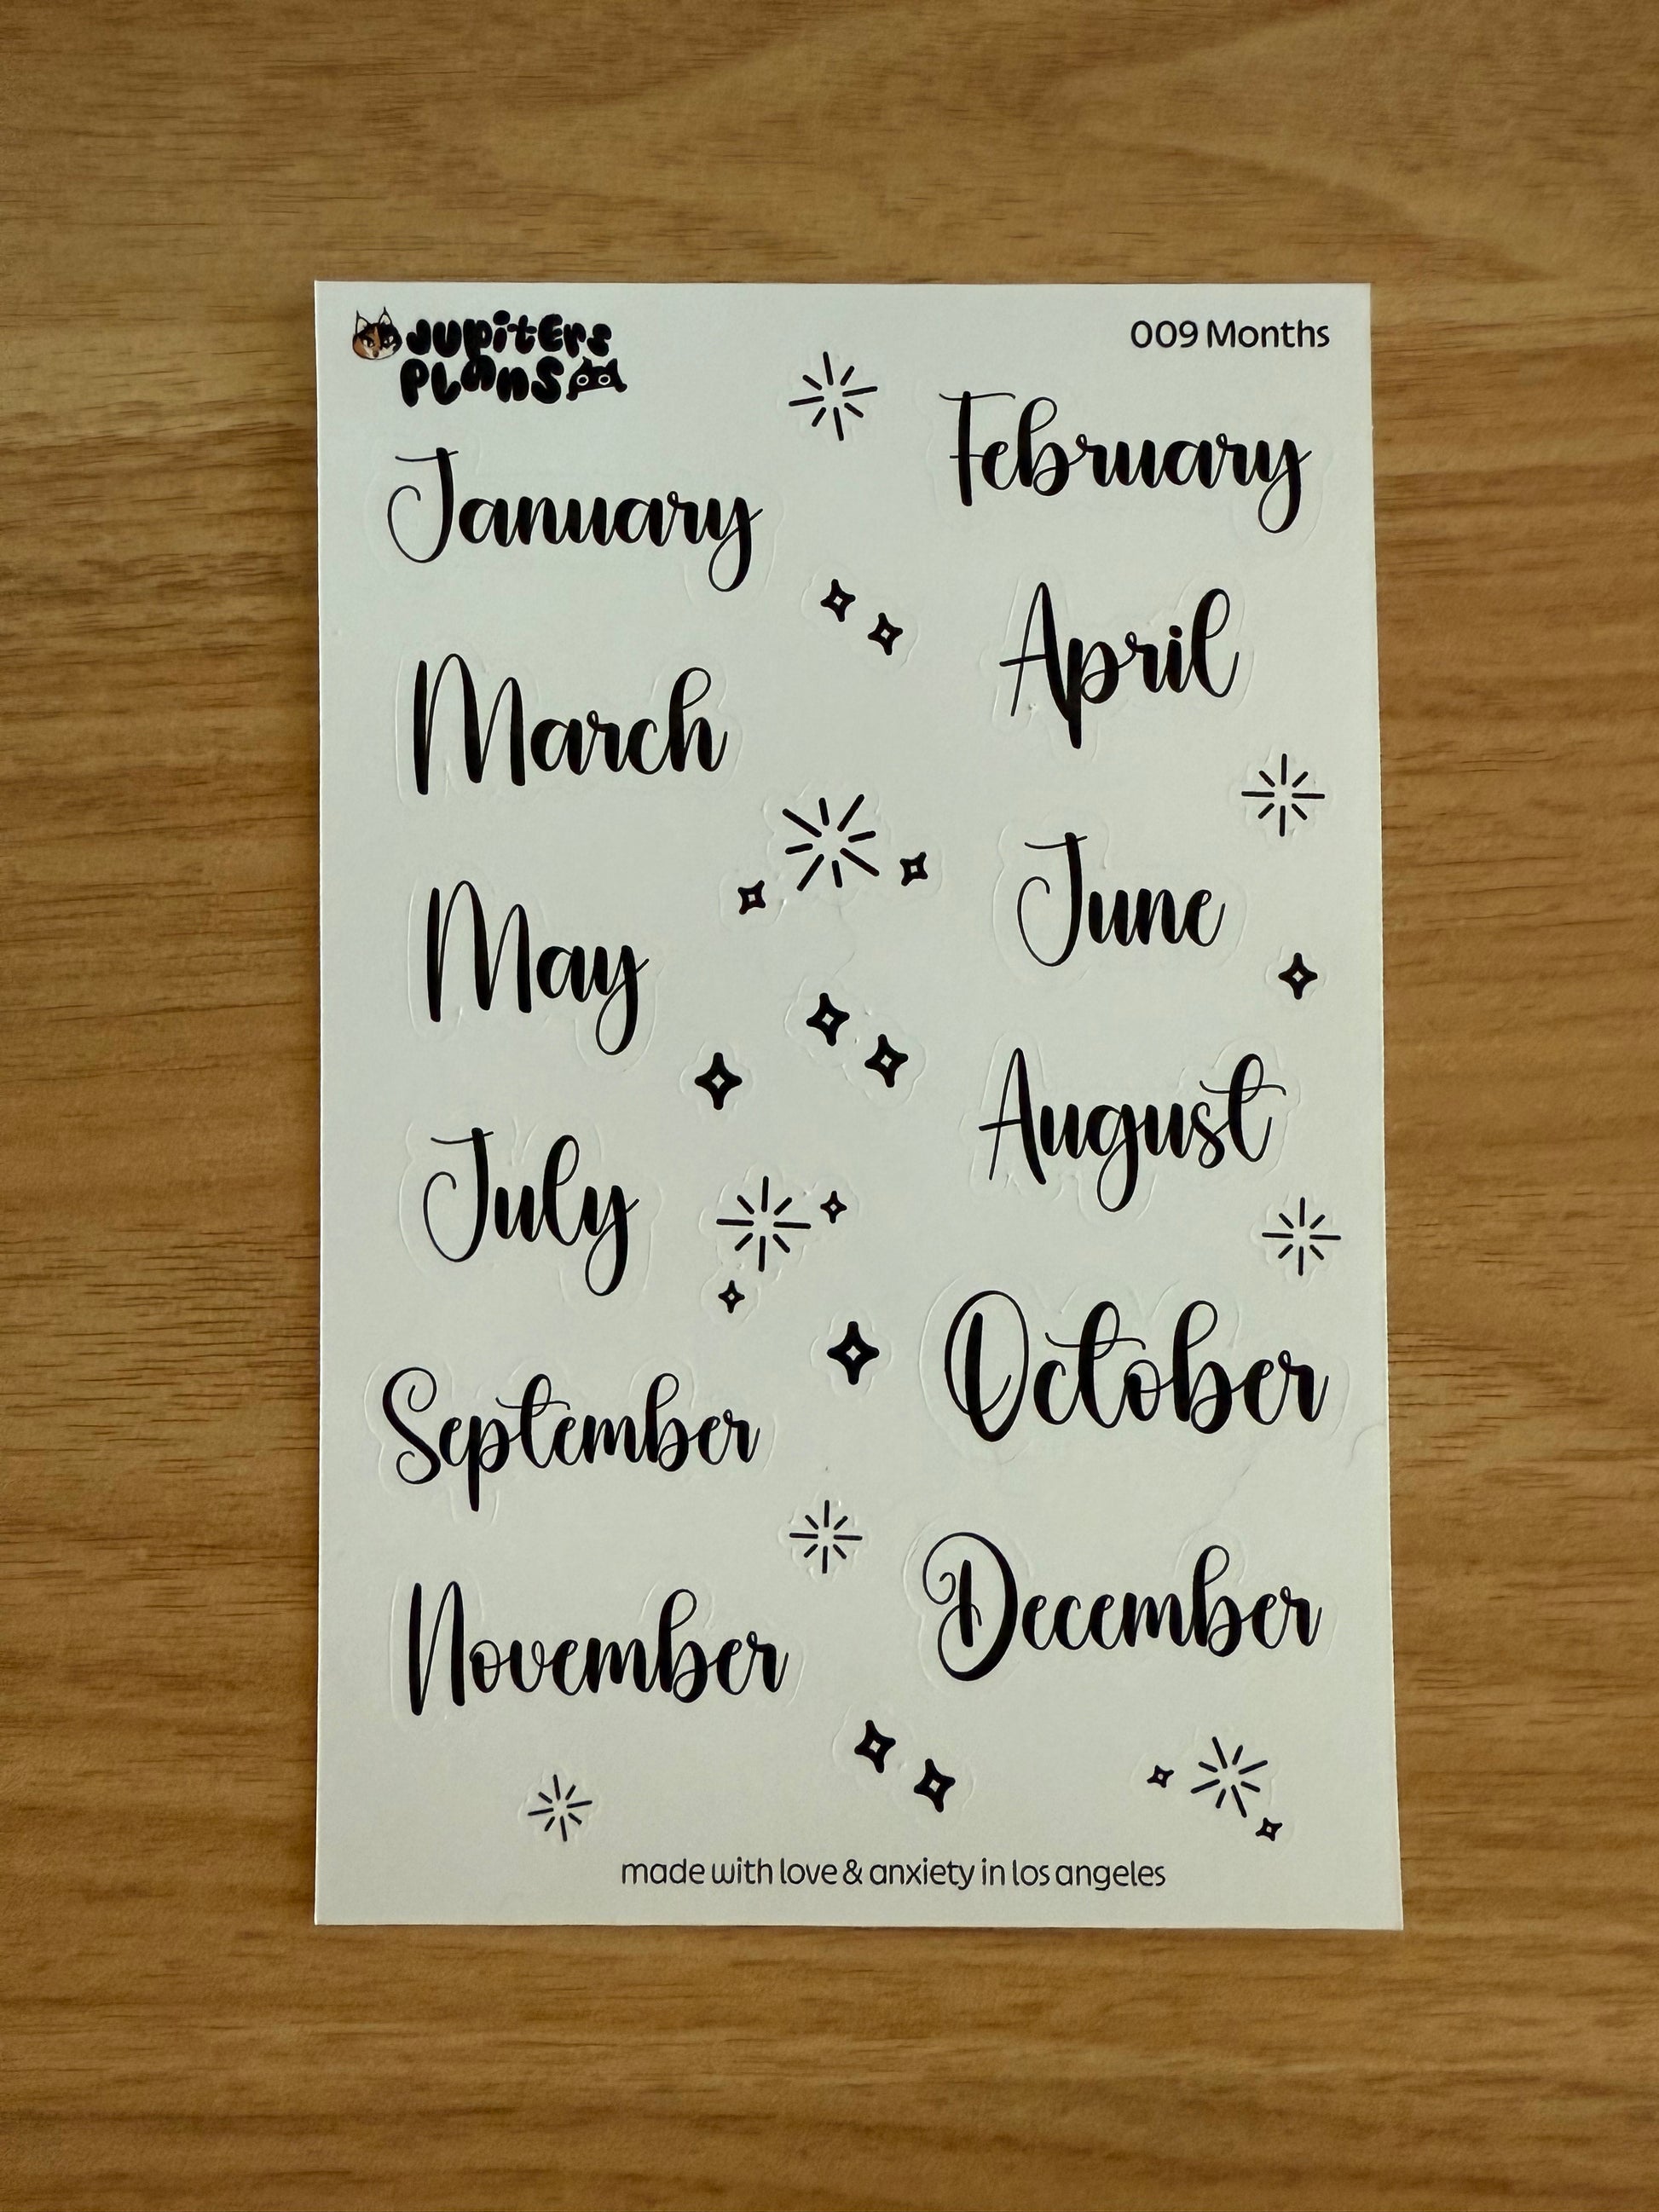 JUPITERS
PLANS
009 Months
January
February
March
April
May
June
July
August
September
October
November
December
made with love & anxiety in los angeles